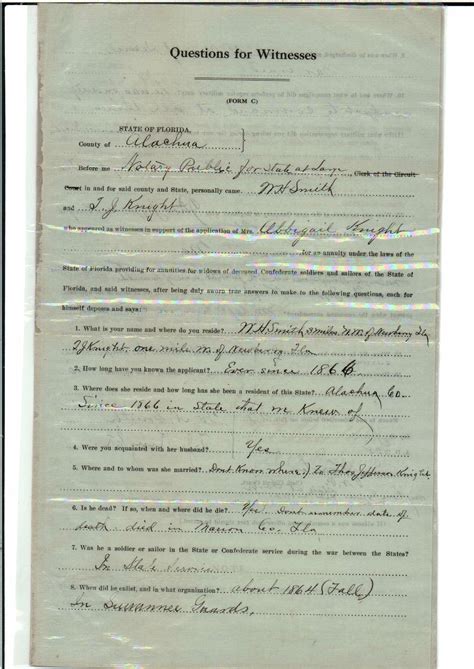 Questions for Witnesses
(FORM C)
STATE OF FLORIDA,
County of Alachua
Before me Notary Public for State at Large, Clerk of the Circuit
Court in and for said county and State, personally came W H Smith
and T. J Knight
who appeared as witnesses in support of the application of Mrs. Abbigail Knight
for an annuity under the laws of the
State of Florida providing for annuities for widows of deceased Confederate soldiers and sailors of the State of
Florida, and said witnesses, after being duly sworn true answers to make to the following questions, each for
himself deposes and says:
1. What is your name and where do you reside? W H Smith 3 miles N.W. of Newberry Fla
T J Knight one mile of Newberry Fla
2. How long have you known the applicant? Ever since 1866
3. Where does she reside and how long has she been a resident of this State? Alachua Co.
Since 1866 in State that we Knew of
4. Were you acquainted with her husband? Yes
5. Where and to whom was she married? Dont Know where) To Thos Jefferson Knight
6. Is he dead? If so, when and where did he die? Yes Dont remember date of
death died in Marion Co. Fla
7. Was he a soldier or sailor in the State or Confederate service during the war between the States?
In State Service
8. When did he enlist, and in what organization? about 1864 (Fall)
In Suwannee Guards,